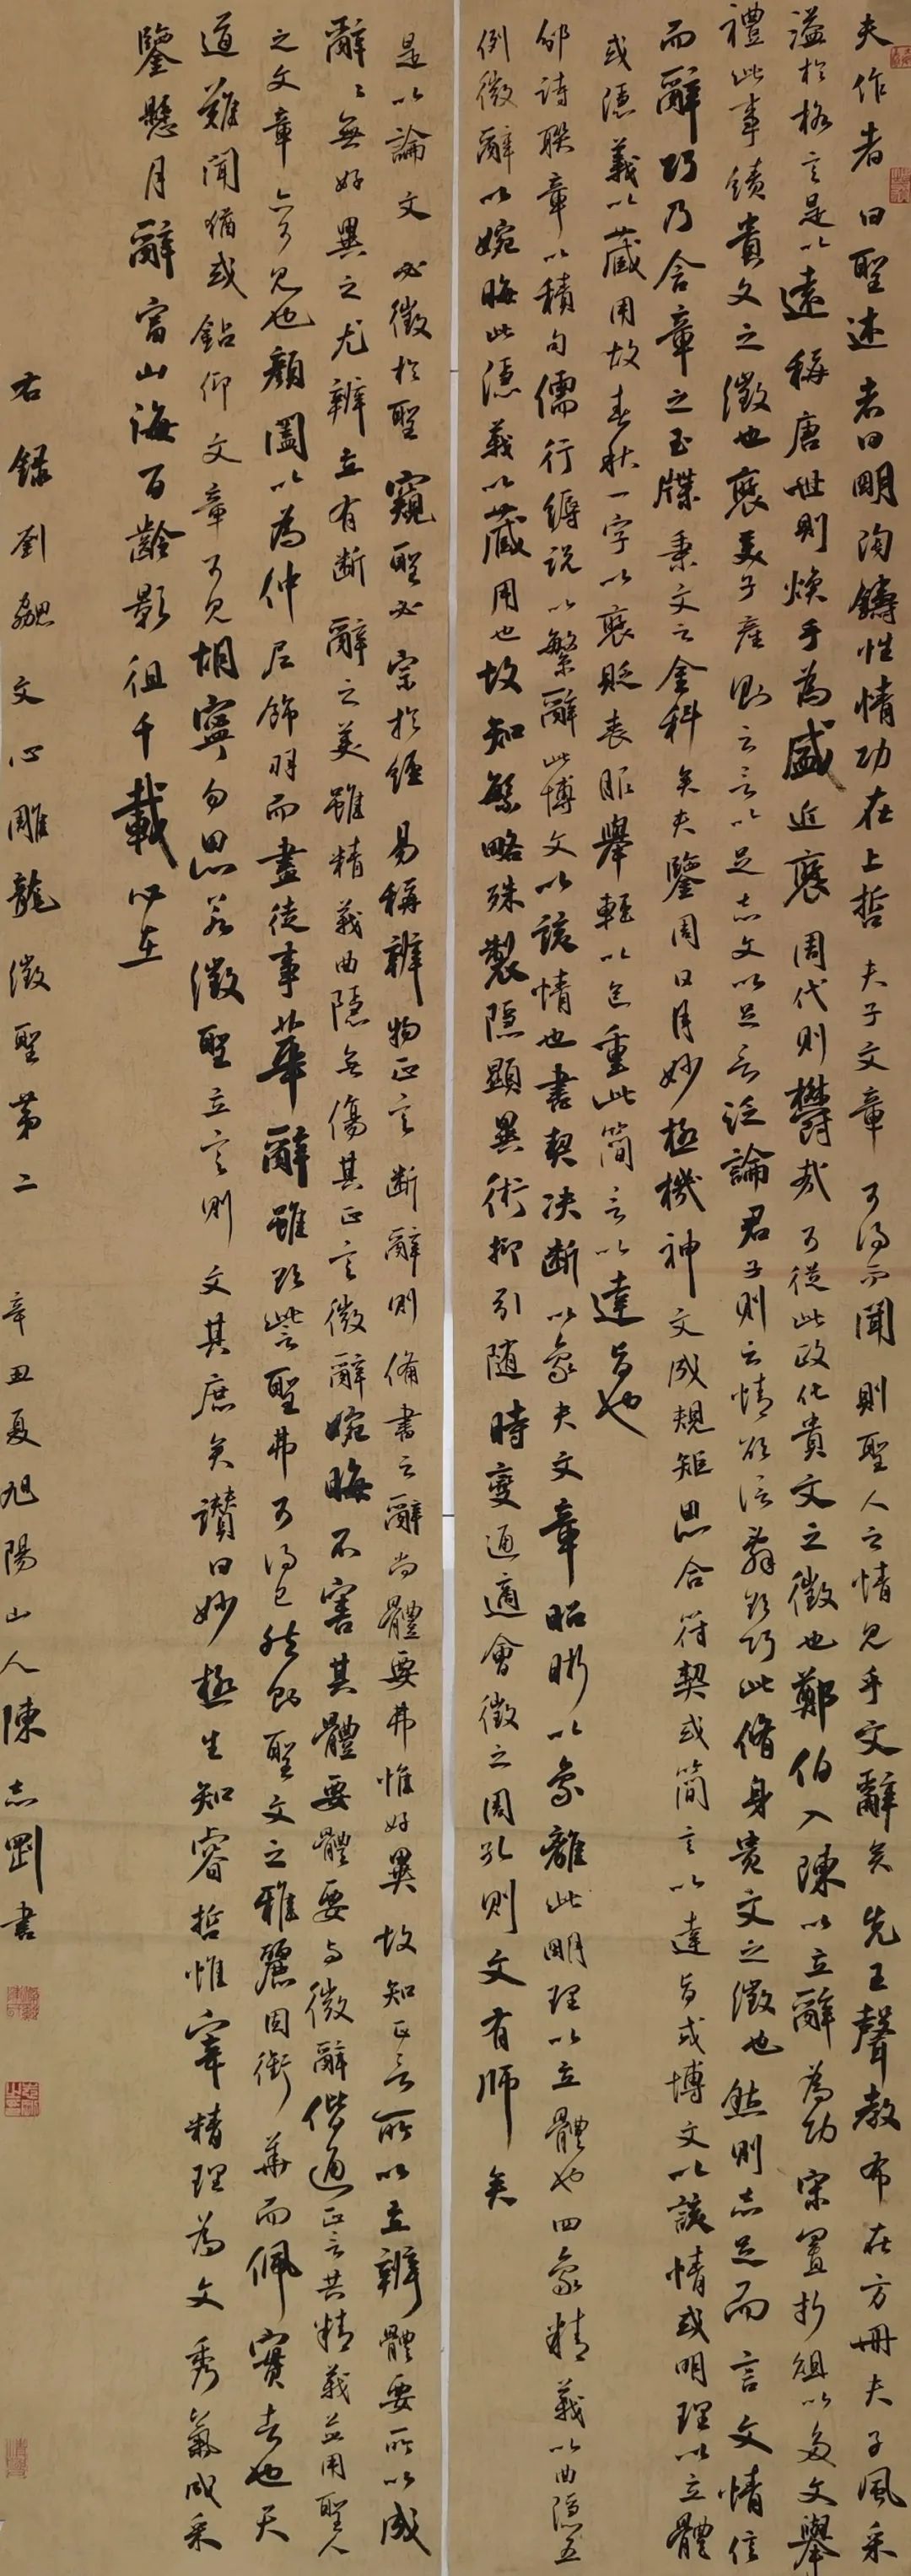 夫作者曰聖述者曰明陶鑄性情功在上哲夫子文章可得而聞則聖人之情見乎文辭矣先王聲教布在方冊夫子風采
溢於格言是以遠稱唐世則煥乎為盛近褒周代則鬱哉可從此政化貴文之徵也鄭伯入陳以立辭為功宋置折俎以多文舉
禮此事績貴文之徵也褒美子產則云言以足志文以足言泛論君子則云情欲信辭欲巧此脩身貴文之徵也然則志足而言文情信
而辭巧乃含章之玉牒秉文之金科矣夫鑒周日月妙極機神文成規矩思合符契或簡言以達旨或博文以該情或明理以立體
或隱義以藏用故春秋一字以褒貶喪服舉輕以包重此簡言以達旨也
邠詩聯章以積句儒行縟說以繁辭此博文以該情也書契決斷以象夬文章昭晰以象離此明理以立體也四象精義以曲隱五
例微辭以婉晦此隱義以藏用也故知繁略殊製隱顯異術抑引隨時變通適會徵之周孔則文有師矣
是以論文必徵於聖窺聖必宗於經易稱辨物正言斷辭則備書云辭尚體要弗惟好異故知正言所以立辯體要所以成
辭辭無好異之尤辨立有斷辭之美雖精義曲隱無傷其正言微辭婉晦不害其體要體要與微辭偕通正言共精義並用聖人
之文章亦可見也顏闔以為仲尼飾羽而畫徒事華辭雖欲訾聖弗可得已然則聖文之雅麗固銜華而佩實者也天
道難聞猶或鉆仰文章可見胡寧勿思若徵聖立言則文其庶矣讚曰妙極生知睿哲惟宰精理為文秀氣成采
鑒懸月辭富山海百齡影徂千載心在
右錄劉勰文心雕龍徵聖第二 辛丑夏旭陽山人陳志剛書